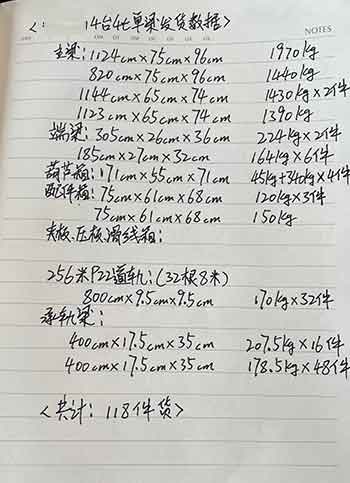 <: 14台4t单梁发货数据>
NOTES
主梁: 1124cm×75cm×96cm 1970kg
820cm×75cm×96cm 1440kg
1144cm×65cm×74cm 1430kg×2件
1123cm×65cm×74cm 1390kg
端梁: 305cm×26cm×36cm 224kg×2件
185cm×27cm×32cm 164kg×6件
葫芦箱: 171cm×55cm×71cm 45kg+340kg×4件
配件箱: 75cm×61cm×68cm 120kg×3件
75cm×61cm×68cm 150kg
夹板、压板、滑线箱:
256米P22道轨: (32根8米)
800cm×9.5cm×9.5cm 170kg×32件
承轨梁:
400cm×17.5cm×35cm 207.5kg×16件
400cm×17.5cm×35cm 178.5kg×48件
<共计: 118件货>